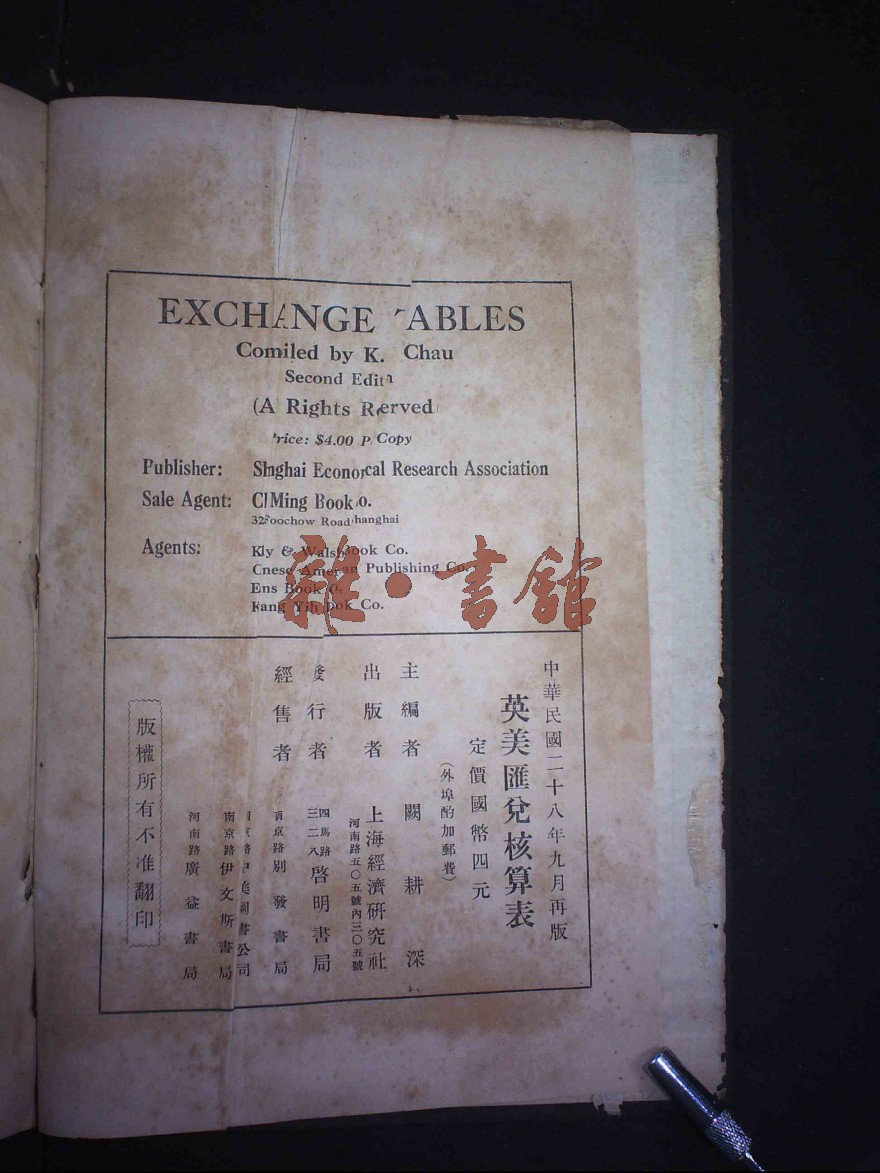 EXCHANGE TABLES
Comiled by K. Chau
Second Edit
(A Rights Rerved
rice: $4.00 P Copy
Publisher: Shnghai Econorcal Research Association
Sale Agent: C Ming Book o.
32 oochow Road hanghai
Agents: Kly & Walsh Book Co.
Cnese Ameran Publishing Co.
Ens Book o.
Kang Yih ook Co.
雜·書館
中華民國二十八年九月再版
英美匯兌核算表
定價國幣四元
(外埠酌加郵費)
主編者 闕耕深
出版者 上海經濟研究社
河南路五〇五號內三〇五號
發行者 四馬路三二八 啓明書局
經售者 南京路 別發書局
南京路 中美圖書公司
南京路 伊文斯書局
河南路 廣益書局
版權所有不准翻印